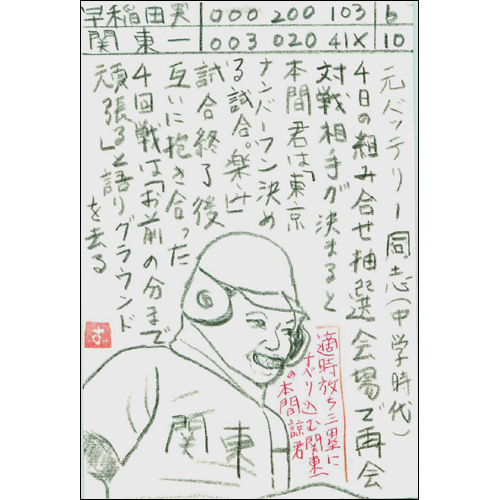 早稲田実 000 200 103 6
関東一 003 020 41X 10
元バッテリー同志(中学時代)
4日の組み合せ抽選会場で再会
対戦相手が決まると
本間君は「東京
ナンバーワン決め
る試合。楽しみ」
試合終了後
互いに抱き合った
4回戦は「お前の分まで
頑張る」と語りグラウンド
を去る
適時放ち二塁に
すべり込む関東一
の本間諒君
す
関東